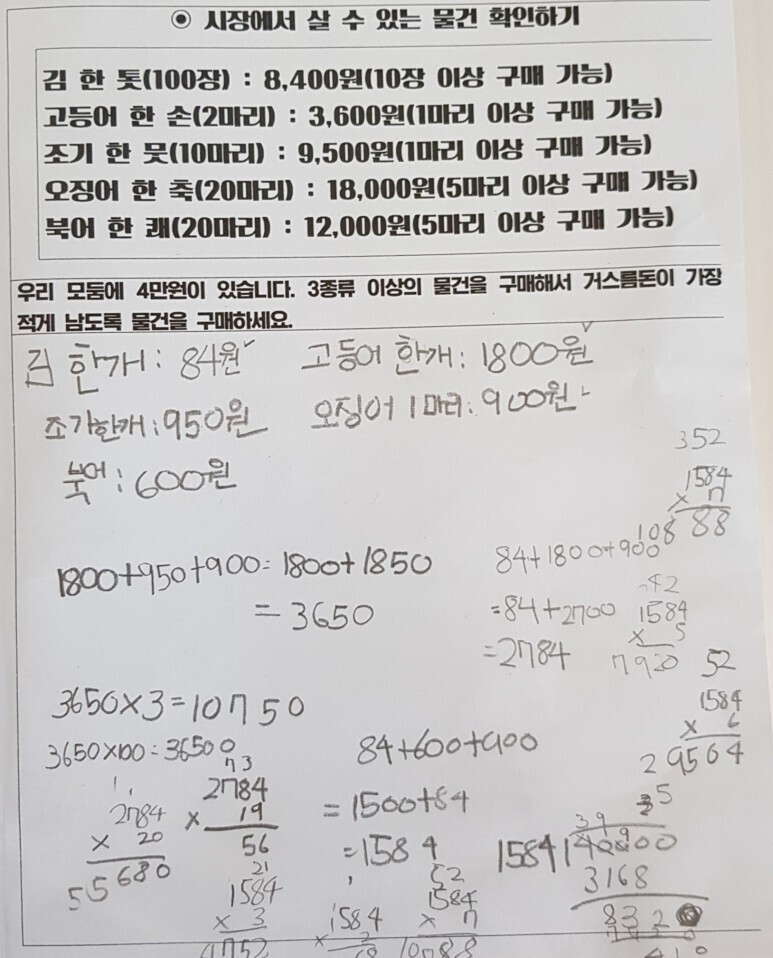 ⊙ 시장에서 살 수 있는 물건 확인하기
김 한 톳(100장) : 8,400원(10장 이상 구매 가능)
고등어 한 손(2마리) : 3,600원(1마리 이상 구매 가능)
조기 한 뭇(10마리) : 9,500원(1마리 이상 구매 가능)
오징어 한 축(20마리) : 18,000원(5마리 이상 구매 가능)
북어 한 쾌(20마리) : 12,000원(5마리 이상 구매 가능)
우리 모둠에 4만원이 있습니다. 3종류 이상의 물건을 구매해서 거스름돈이 가장
적게 남도록 물건을 구매하세요.
김 한개: 84원 고등어 한개: 1800원
조기한개: 950원 오징어 1마리: 900원
북어: 600원
352
1584
× 7
10888
1800+950+900=1800+1850
=3650
84+1800+900
=84+2700
=2784
42
1584
× 5
7920
52
1584
× 6
29564
3650×3=10750
3650×100=36500
84+600+900
=1500+84
=1584
2784
× 20
55680
73
2784
× 19
56
21
1584
× 3
4752
1584
×
52
1584
× 7
10788
1584
3168
832